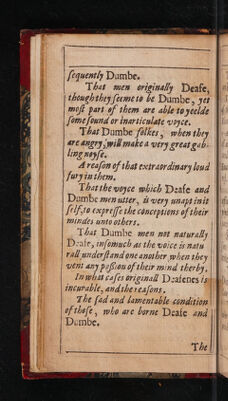 sequently Dumbe.
That men originally Deafe,
though they seeme to be Dumbe, yet
most part of them are able to yeelde
some sound or inarticulate voyce.
That Dumbe folkes, when they
are angry, will make a very great gab-
ling noyse.
A reason of that extraordinary loud
fury in them.
That the voyce which Deafe and
Dumbe men utter, is very unapt in it
self, to expresse the conceptions of their
mindes unto others.
That Dumbe men not naturally
Deafe, insomuch as the voice is natu
rall understand one another when they
vent any passion of their mind therby.
In what cases originall Deafenes is
incurable, and the reasons.
The sad and lamentable condition
of those, who are borne Deafe and
Dumbe.
The